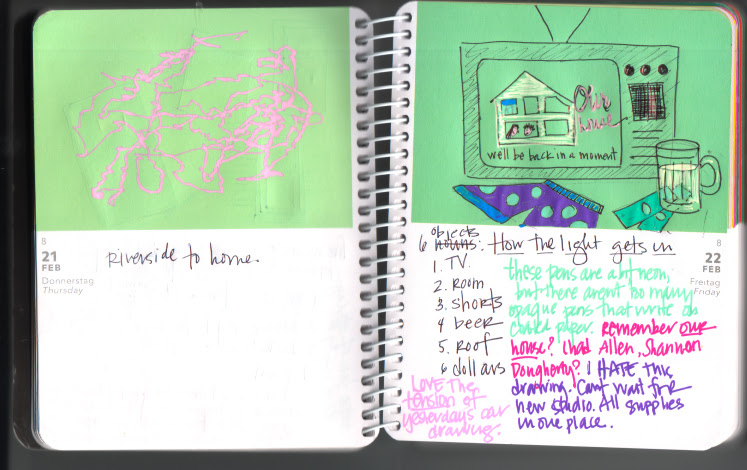 8
21
FEB
Donnerstag
Thursday
Riverside to home.
Our
house
we'll be back in a moment
objects
6 nouns: How the light gets in
1. TV
2. room
3. shorts
4 beer
5. roof
6 dollars
8
22
FEB
Freitag
Friday
these pens are a bit neon,
but there aren't too many
opaque pens that write on
coated paper. Remember our
house? Chad Allen, Shannon
Dougherty? I HATE this
drawing. Can't wait for
new studio. All supplies
in one place.
LOVE the
tension of
yesterday's car
drawing.